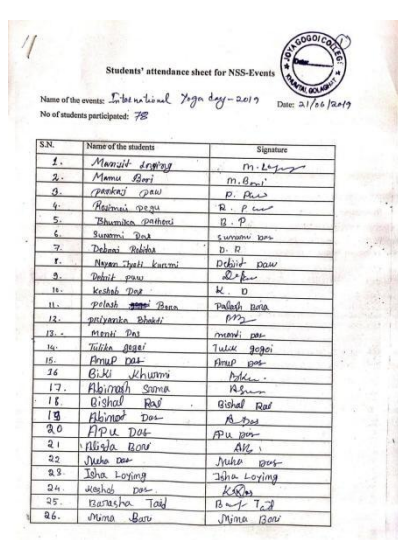 JOYA GOGOI COLLEGE
KHUMTAI, GOLAGHAT
Students' attendance sheet for NSS-Events
Name of the events: International Yoga day-2019 Date: 21/06/2019
No of students participated: 78
S.N. Name of the students Signature
1. Manjit Loying
2. Mamu Bori M. Bori
3. Pankaj paw P. Paw
4. Rasmoi Pegu
5. Bhumika pathori B. P
6. Sunami Das Sunami Das
7. D. R
8. Nayan Jyoti Kurmi
9. Debjit paw
10. Keshab Das K. D
11. Polash Bora Palash Bora
12. priyanka Bhakti
13. Monti Das monti Das
14. Tulika gogoi Tulik gogoi
15. Anup Das Anup Das
16 Biki Khurmi
17. Abinash
18. Bishal Rai Bishal Rai
19 Abinod Das A Das
20 APu Das APu Das
21 Alista Bori
22 Nuha Das Nuha Das
23. Isha Loying Isha Loying
24. Keshob Das.
25. Barasha Taid
26. Mina Bori Mina Bori